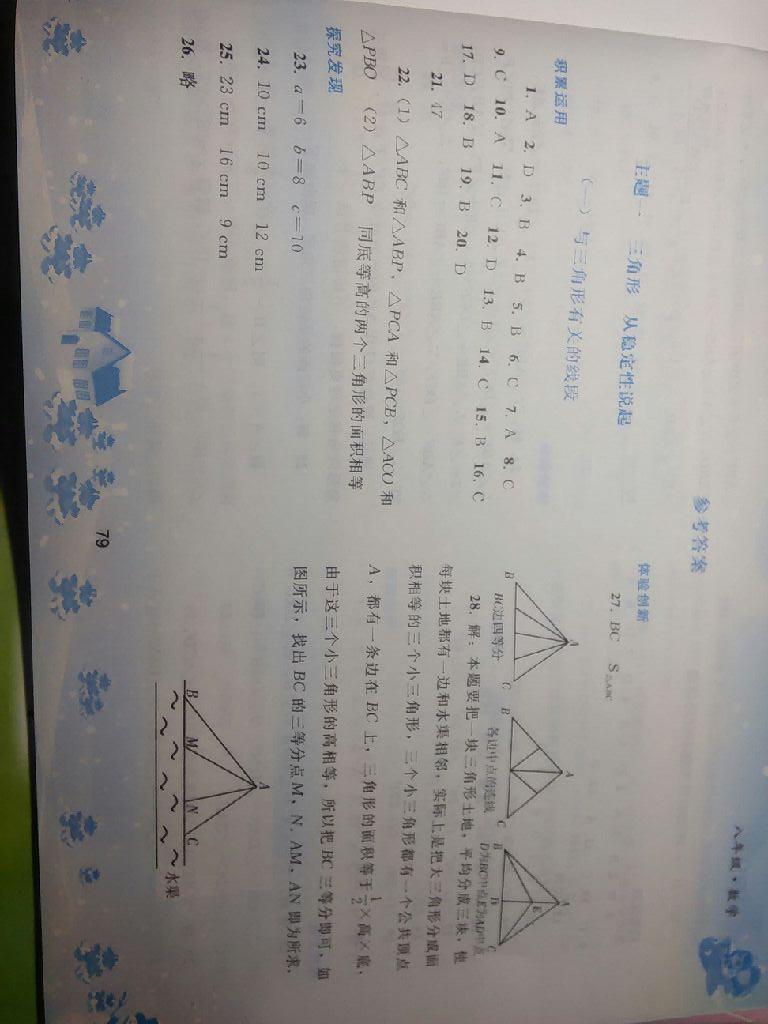 八年级·数学
参考答案
主题一 三角形 从稳定性说起
（一）与三角形有关的线段
积累运用
1. A 2. D 3. B 4. B 5. B 6. C 7. A 8. C
9. C 10. A 11. C 12. D 13. B 14. C 15. B 16. C
17. D 18. B 19. B 20. D
21. 47
22. (1) △ABC 和△ABP、△PCA 和△PCB，△ACO 和
△PBO (2) △ABP 同底等高的两个三角形的面积相等
探究发现
23. a=6 b=8 c=10
24. 10 cm 10 cm 12 cm
25. 23 cm 16 cm 9 cm
26. 略
体验创新
27. BC S△ABC
A
B
C
BC边四等分
A
B
C
各边中点的连线
A
E
B
D
C
D为BC中点E为AD中点
28. 解：本题要把一块三角形土地，平均分成三块，使
每块土地都有一边和水渠相邻，实际上是把大三角形分成面
积相等的三个小三角形，三个小三角形都有一个公共顶点
A，都有一条边在 BC 上，三角形的面积等于1/2×高×底，
由于这三个小三角形的高相等，所以把 BC 三等分即可，如
图所示，找出 BC 的三等分点 M、N，AM、AN 即为所求．
A
B M N C
水渠
79